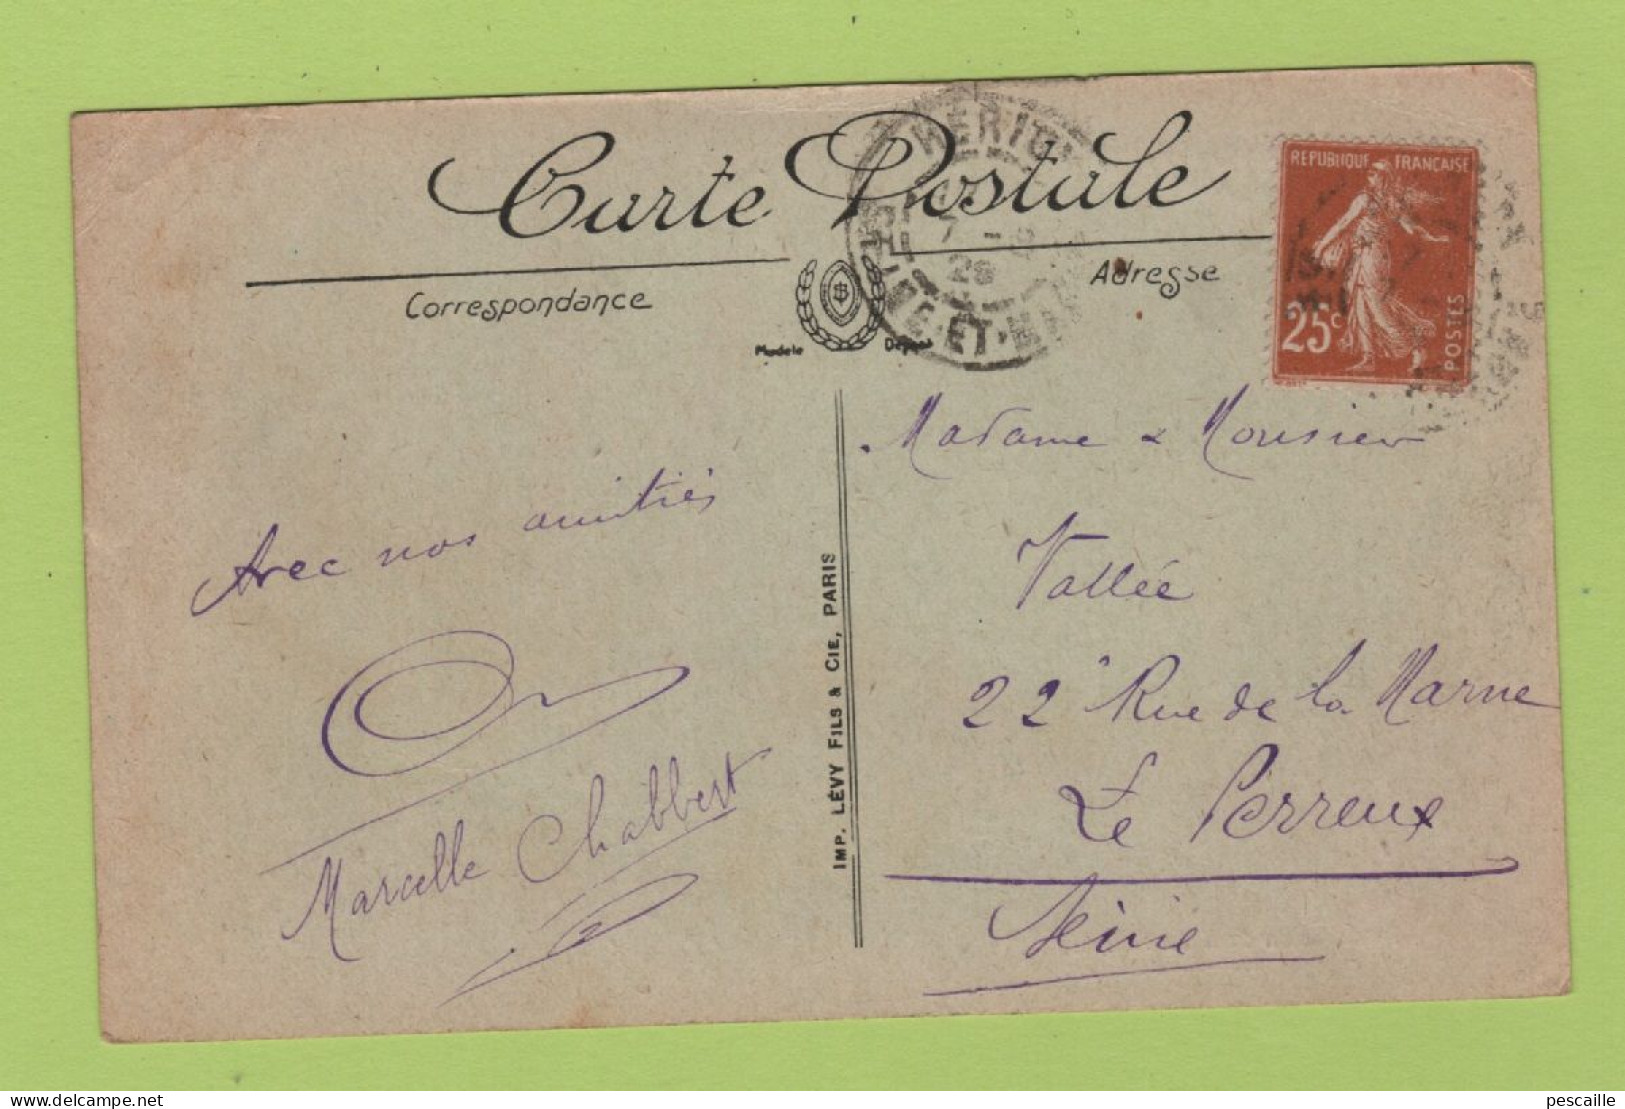 Carte Postale
Correspondance
Adresse
Modèle Déposé
RÉPUBLIQUE FRANÇAISE
25c
POSTES
7 - 8
28
ET
Avec nos amitiés
Marcelle Chabbert
IMP. LÉVY FILS & CIE, PARIS
Madame & Monsieur
Vallée
22 Rue de la Marne
Le Perreux
Seine
pescaille